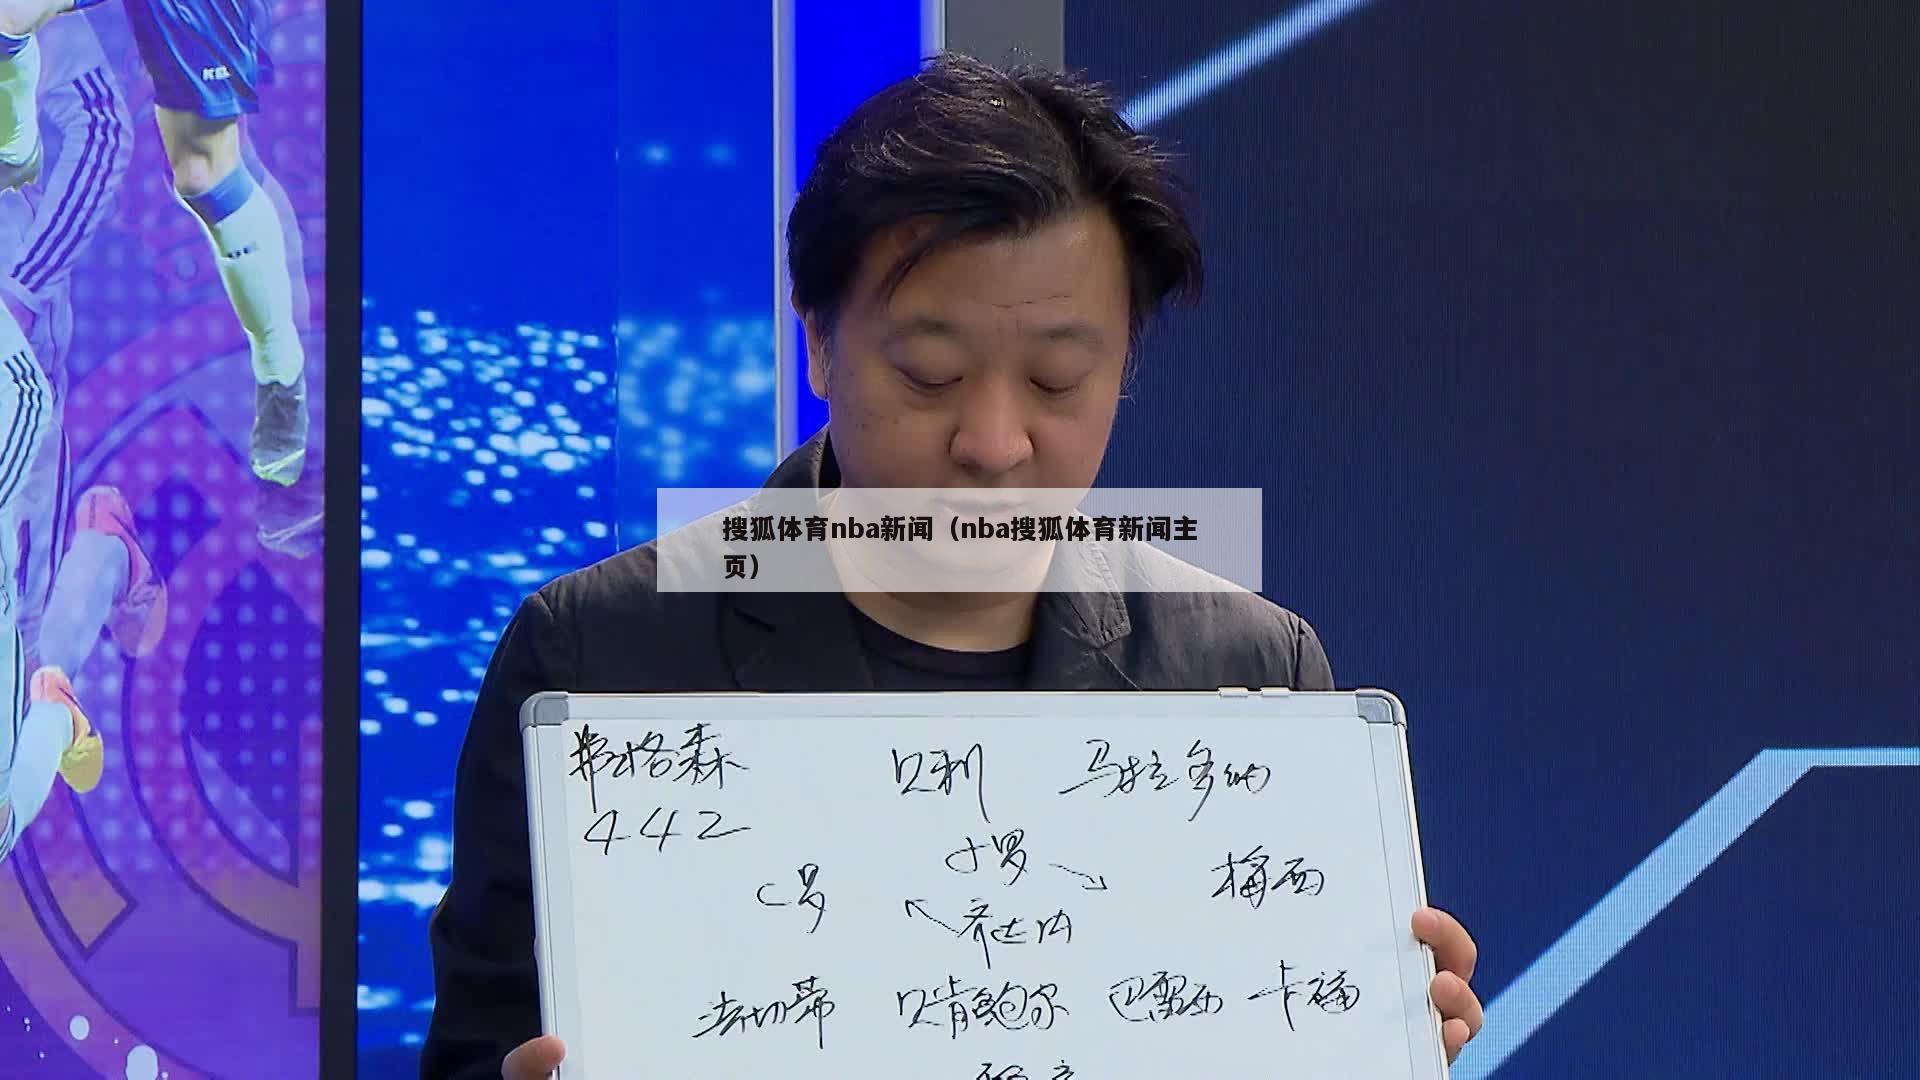 搜狐体育nba新闻（nba搜狐体育新闻主
页）
弗格森 贝利 马拉多纳
442
小罗
C罗 梅西
齐达内
法切蒂 贝肯鲍尔 巴雷西 卡福